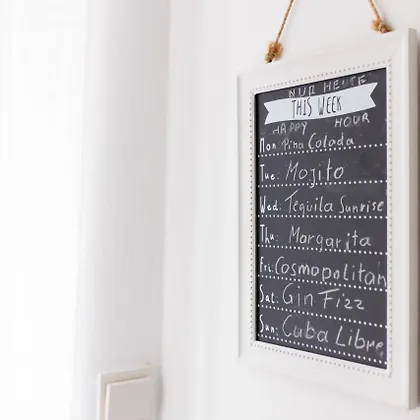 NUR HEUTE
THIS WEEK
HAPPY HOUR
Mon: Pina Colada
Tue: Mojito
Wed: Tequila Sunrise
Thu: Margarita
Fri: Cosmopolitan
Sat: Gin Fizz
Sun: Cuba Libre